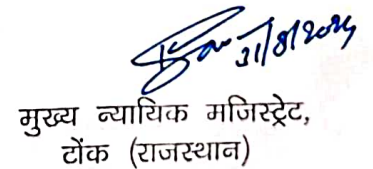 31/8/2024
मुख्य न्यायिक मजिस्ट्रेट,
टोंक (राजस्थान)